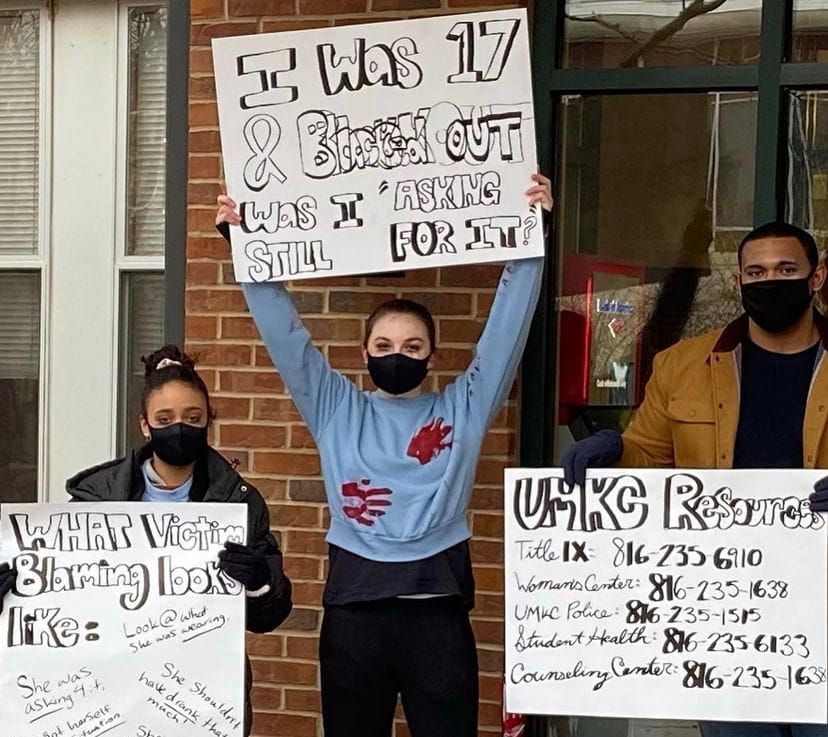 I Was 17
& Blacked OUT
WAS I "ASKING
STILL FOR IT?
WHAT Victim
Blaming looks
like:
Look @ what
she was wearing.
She was
asking 4 it.
got herself
She shouldn't
have drank that
much!
UMKC Resources
Title IX: 816-235-6910
Womans Center: 816-235-1638
UMKC Police: 816-235-1515
Student Health: 816-235-6133
Counseling Center: 816-235-1638